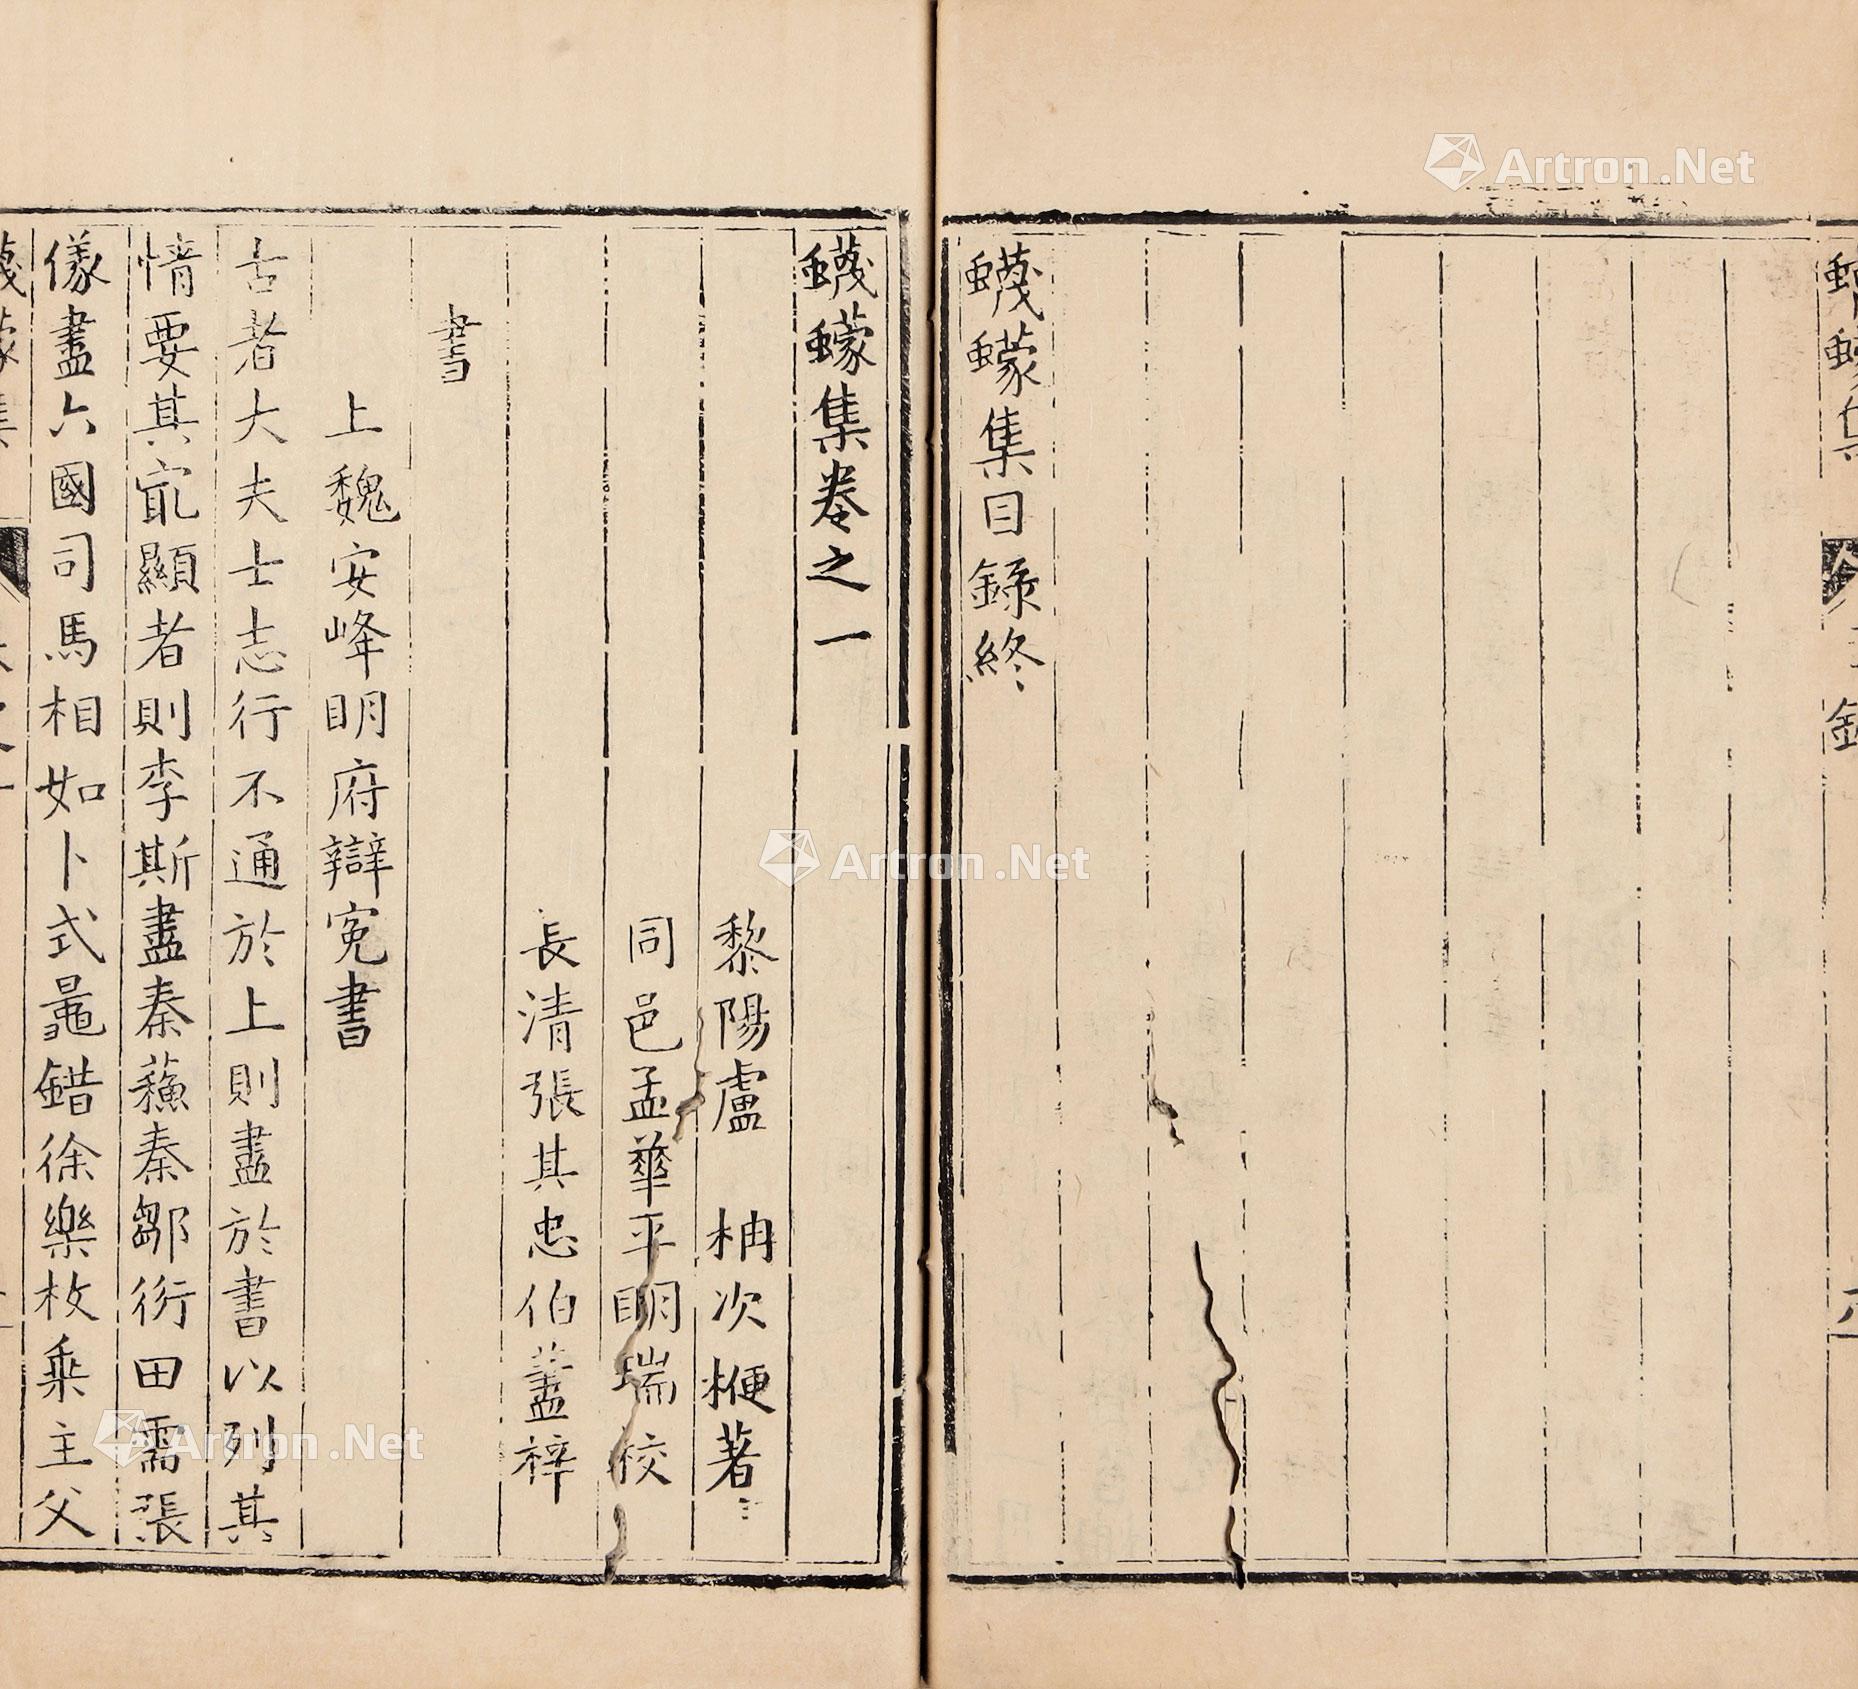 蠛蠓集目錄終
蠛蠓集卷之一
黎陽盧 柟次楩著
同邑孟華平明瑞校
長清張其忠伯藎梓
書
上魏安峰明府辯冤書
古者大夫士志行不通於上則盡於書以列其
情要其㝡顯者則李斯盡秦蘇秦鄒衍田需張
儀盡六國司馬相如卜式鼂錯徐樂枚乘主父
Artron.Net
Artron.Net
Artron.Net